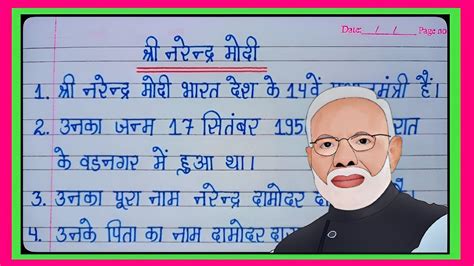 Date: / / Page no
श्री नरेन्द्र मोदी
1. श्री नरेन्द्र मोदी भारत देश के 14वें हैं।
2. उनका जन्म 17 सितंबर
के वडनगर में हुआ था।
3. उनका पूरा नाम नरेन्द्र दामोदर
4. उनके पिता का नाम दामोदर